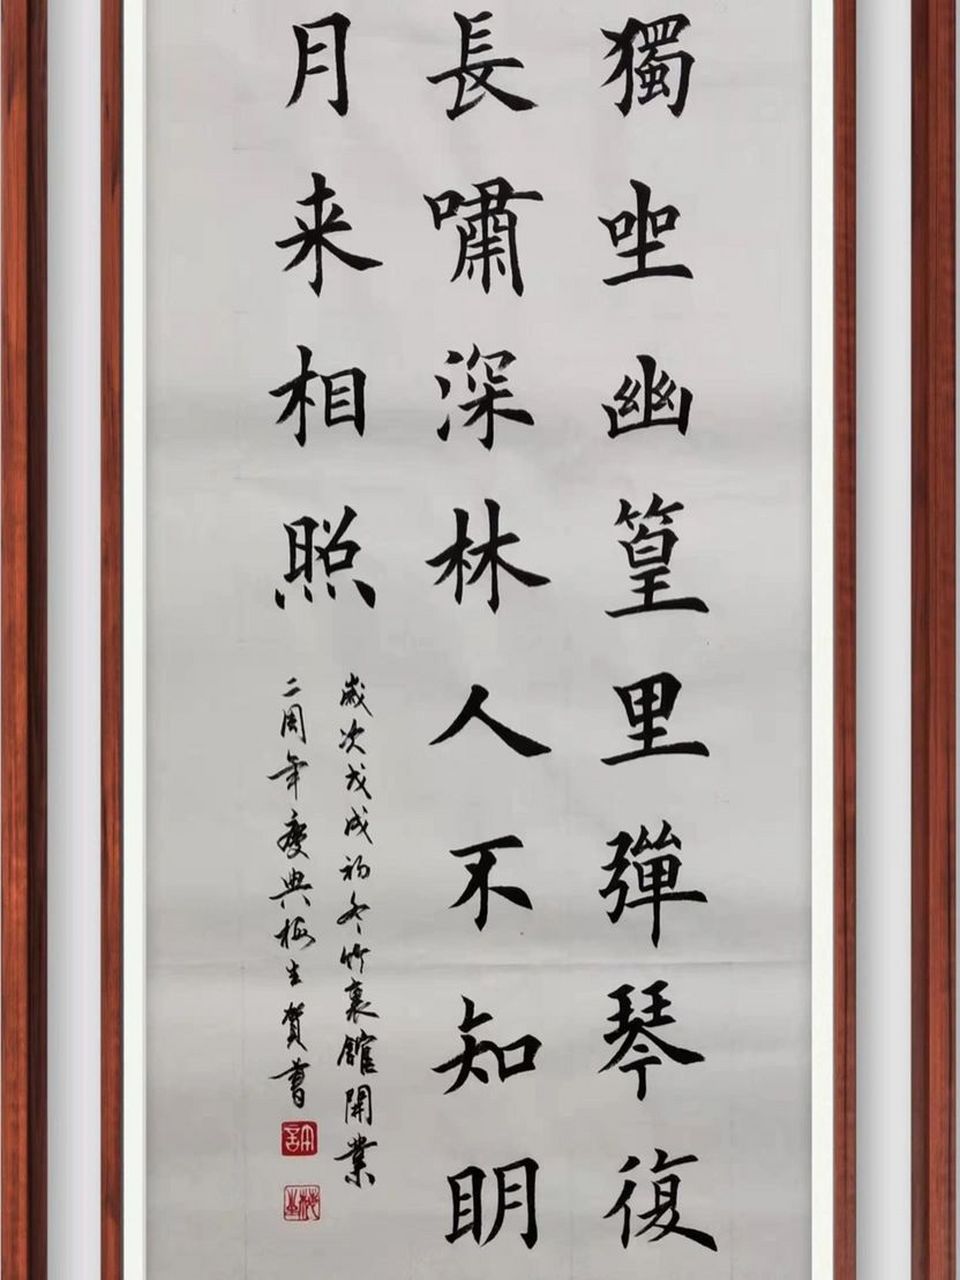 獨坐幽篁里彈琴復
長嘯深林人不知明
月来相照
歲次戊戌初冬竹裏館開業
二周年慶典梅生賀書